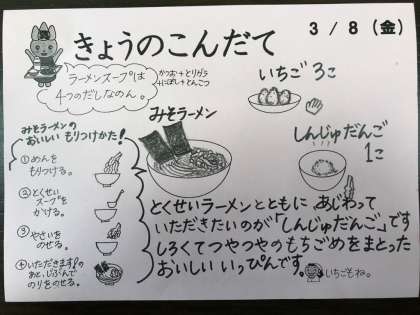 3/8(金)
きょうのこんだて
ラーメンスープは
4つのだしなのん。
かつお+とりガラ
+にぼし+とんこつ
いちご3こ
みそラーメン
しんじゅだんご
1こ
みそラーメンの
おいしい もりつけかた!
①めんを
もりつける。
②とくせい
スープを
かける。
③やさいを
のせる。
④いただきます!の
あと、じぶんで
のりをのせる。
とくせいラーメンとともに あじわって
いただきたいのが「しんじゅだんご」です
しろくてつやつやのもちごめをまとった
おいしい いっぴんです。
いちごもね。